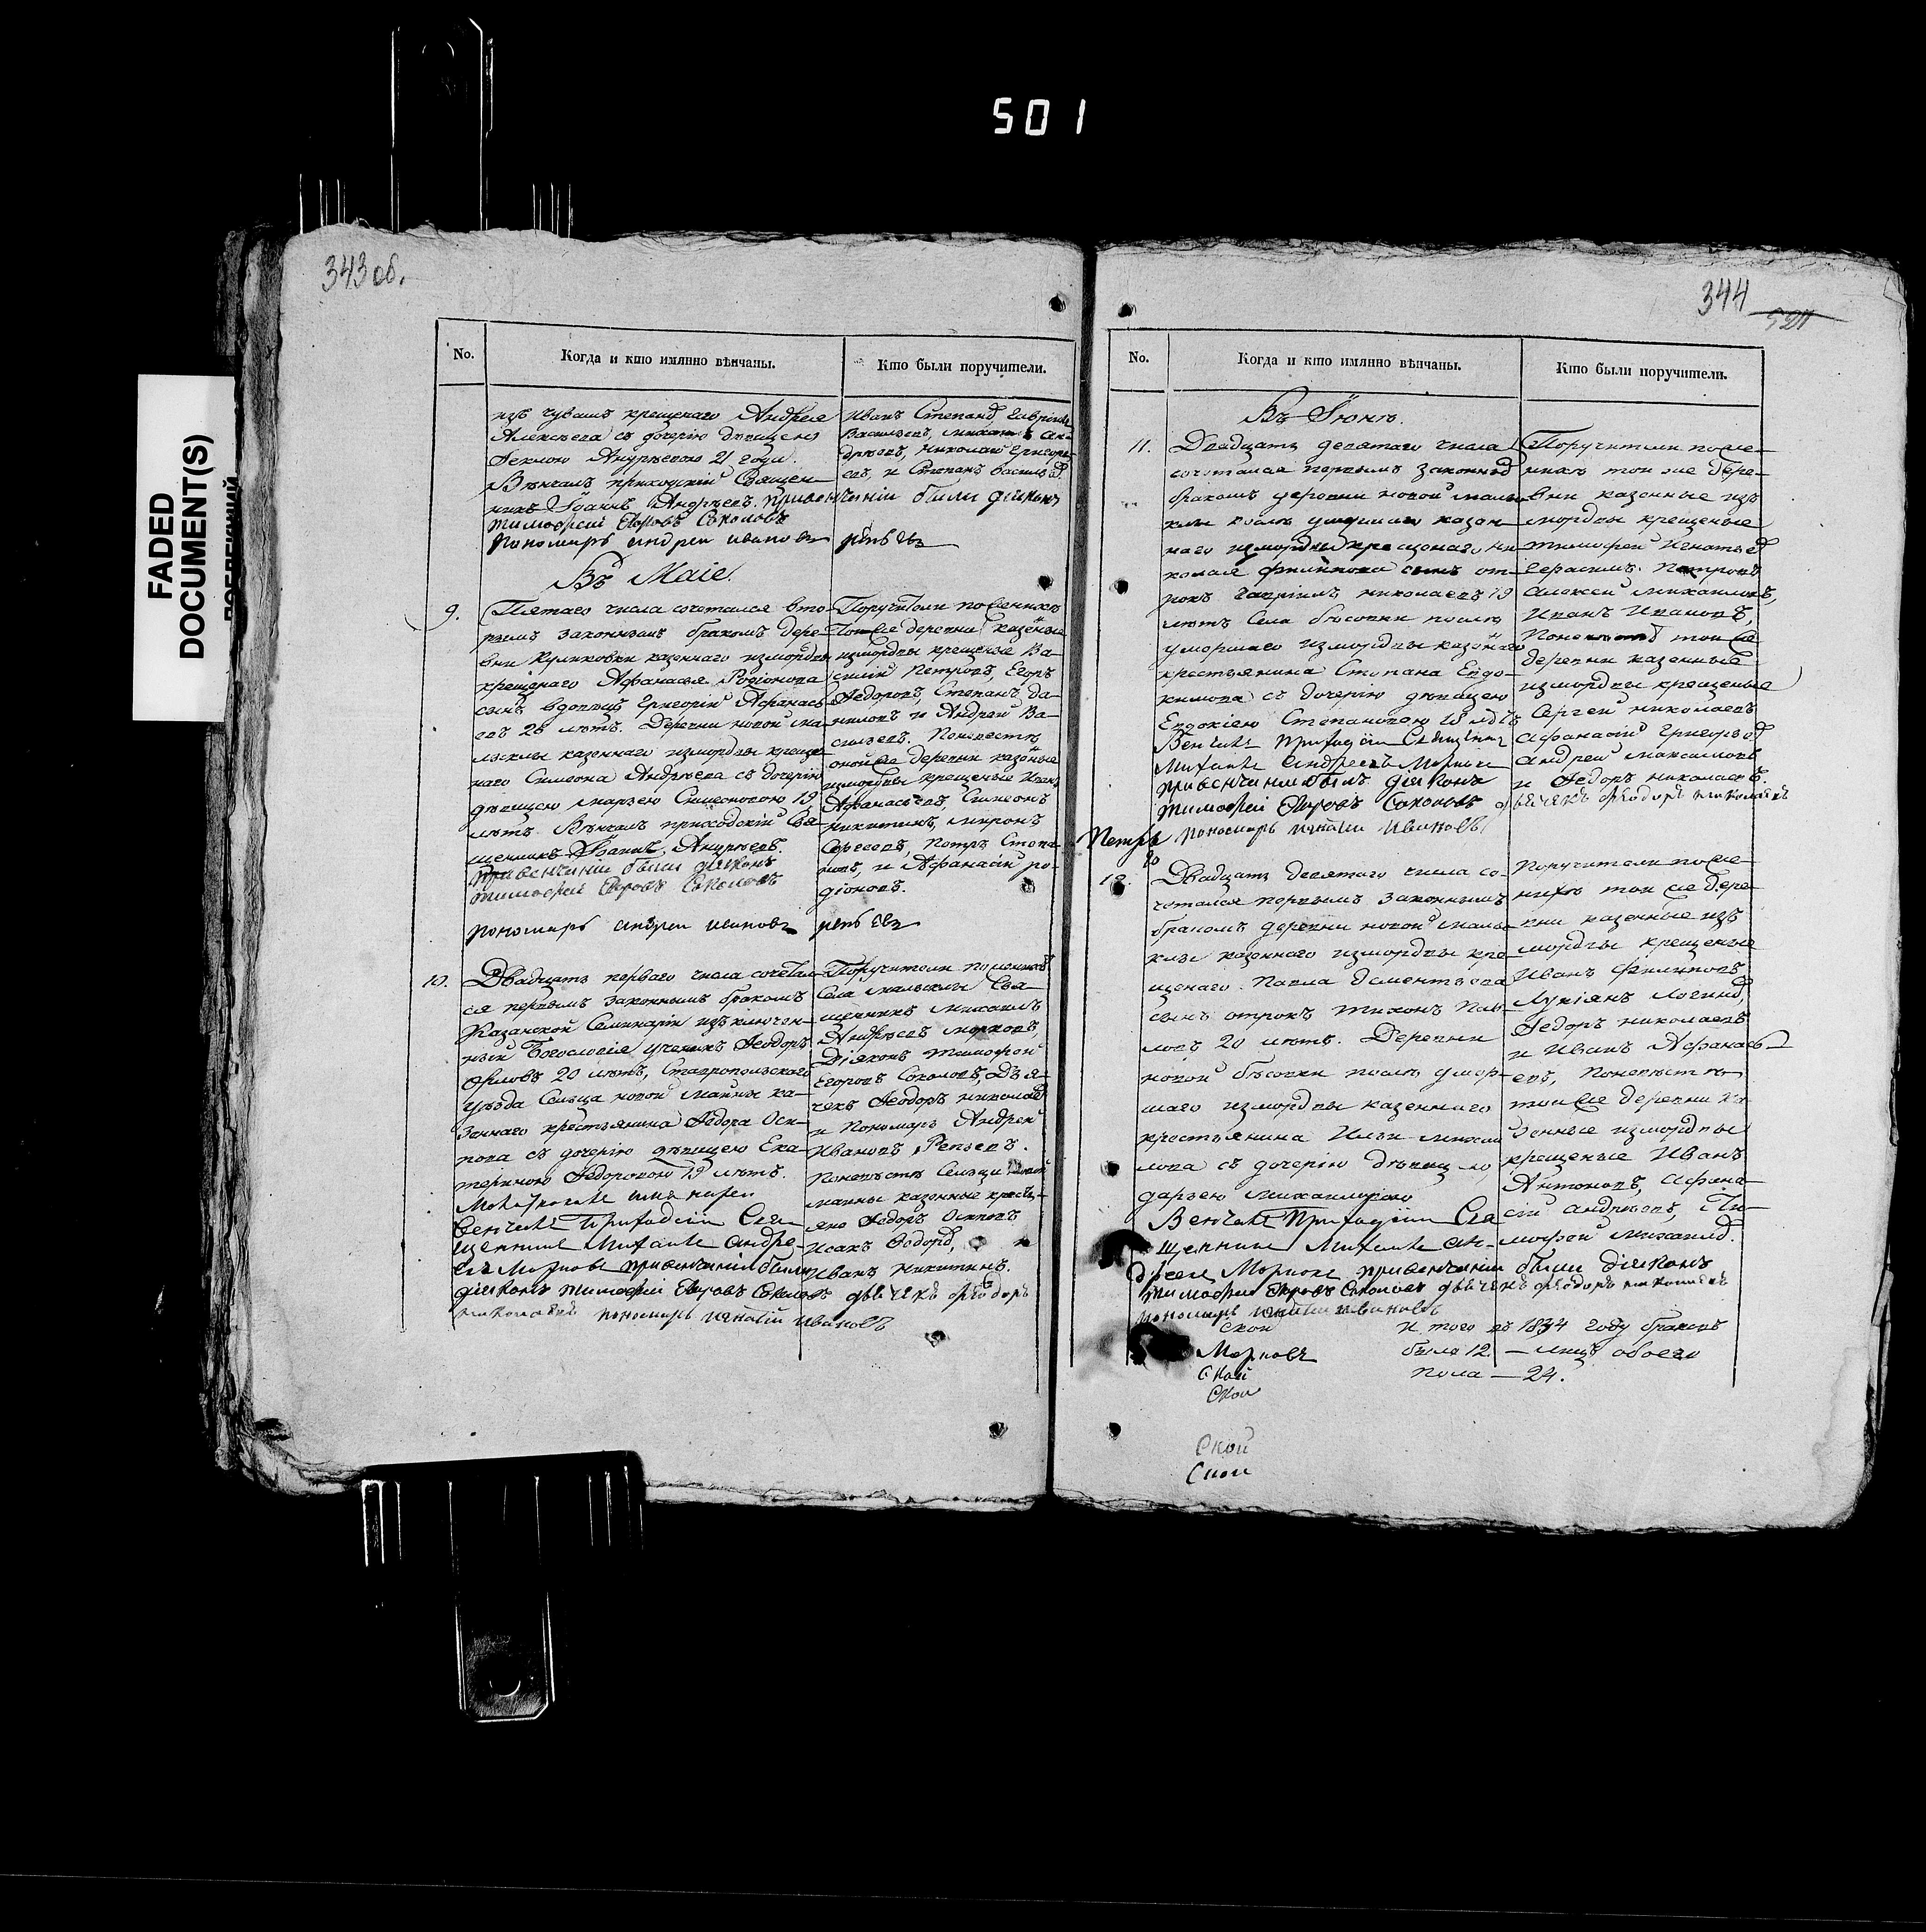 501
FADED
DOCUMENT(S)
343 об.
No.
Когда и кто имянно вѣнчаны.
Кто были поручители.
изъ чувашъ крещенаго Андрея
Алексѣева съ дочерію дѣвицею
Феклою Андрѣевою 21 года.
Вѣнчалъ приходскій Священ-
никъ Іоаннъ Андрѣевъ. при венчаніи были діяконъ
тимофей Егоровъ Соколовъ
пономарь андреи ивановъ репьевъ
Иванъ Степанов
Васильевъ,
дрѣевъ, Николай Григорь-
евъ, и Степанъ Васильев.
Въ Маіе.
9.
Пятаго числа сочетался вто-
рымъ законнымъ бракомъ дере-
вни Куликовки казеннаго измордвы
крещенаго Афанасья Родіонова
сынъ вдовый Григорій Афанась
евъ 26 лѣтъ. Деревни новой ма-
лыклы казеннаго измордвы креще-
наго Симеона Андрѣева съ дочерію
дѣвицею Марѳею Симеоновою 19
лѣтъ. Вѣнчалъ приходскій Свя-
щенникъ Іоаннъ Андрѣевъ.
при венчаніи были діяконъ
тимофей Егоровъ Соколовъ
пономарь андреи ивановъ репьевъ
Поручители по женихѣ
той же деревни казенные
измордвы крещеные Ва-
силій Петровъ, Егоръ
Федоровъ, Степанъ Да-
ниловъ и Андрей Ва-
сильевъ. По невестѣ
оной же деревни казеные
измордвы крещеные Иванъ
Афанасьевъ, Симеонъ
Никитинъ, Миронъ
Сергеевъ, Петръ Степа
новъ, и Афанасій ро-
діоновъ.
10.
Двадцать перваго числа сочетал-
ся первымъ законнымъ бракомъ
Казанской Семинаріи изъключен-
ный Богословія ученикъ Феодоръ
Орловъ 20 лѣтъ, Ставропольскаго
уѣзда Сельца новой Майны ка-
зеннаго крестьянина Федора Оси-
пова съ дочерію дѣвицею Ека-
териною Федоровою 19 лѣтъ.
Венчалъ Приходскіи Свя
щенникъ Михаилъ Андре-
евъ Морковъ при венчаніи были
діяконъ тимофей Егоровъ Соколовъ дьячекъ феодоръ
николаевъ пономарь игнатіи ивановъ
Поручители по женихѣ
Села малыклы Свя-
щенникъ Михаилъ
Андрѣевъ Морковъ,
Діяконъ Тимофей
Егоровъ Соколовъ, Дья-
чекъ Феодоръ Николаев
и Пономарь Андрей
Ивановъ Репьевъ.
По невѣстѣ Сельца новой
майны казенные кресть-
яне Федоръ Осиповъ
Исакъ Федоров,
Иванъ Никитинъ.
344
No.
Когда и кто имянно вѣнчаны.
Кто были поручители.
Въ Іюнѣ.
11.
Двадцать девятаго числа
сочетался первымъ законным
бракомъ деревни новой малы-
клы послѣ умершаго казен-
наго измордвы крещенаго Ни
колая Филипова сынъ от-
рокъ Гавріилъ Николаевъ 19
лѣтъ Села бѣсовки послѣ
умершаго измордвы казенаго
крестьянина Степана Евдо-
кимова съ дочерію дѣвицею
Евдокіею Степановою 18 лѣтъ
Венчалъ Приходскіи Священник
Михаилъ Андреевъ Морковъ
при венчаніи былъ діяконъ
тимофей Егоровъ Соколовъ дьячекъ феодоръ николаевъ
пономарь игнатіи ивановъ
Поручители по же-
нихѣ той же дере-
вни казенные изъ
мордвы крещеные
Тимофей Игнатьев
Герасимъ Петровъ
Алексей Михаиловъ,
Иванъ Ивановъ,
По невѣстѣ той же
деревни казенные
измордвы крещеные
Сергей Николаевъ
Афанасій Григорьев
Андрей Максимовъ
и Федоръ Николаевъ.
Петръ
12.
Двадцать девятаго числа со-
четался первымъ законнымъ
бракомъ деревни новой малы-
клы казеннаго измордвы кре-
щенаго Павла Дементьева
сынъ отрокъ Тихонъ Пав-
ловъ 20 лѣтъ. Деревни
новой бѣсовки послѣ умер-
шаго измордвы казеннаго
крестьянина Ильи Михаи
лова съ дочерію дѣвицею,
дарьею Михаиловою
Венчалъ Приходскіи Свя
щенникъ Михаилъ Ан-
дреевъ Морковъ при венчаніи были діяконъ
тимофей Егоровъ Соколовъ дьячекъ феодоръ николаевъ
пономарь игнатіи ивановъ
Поручители по же
нихѣ той же дере-
вни казенные изъ
мордвы крещеные
Иванъ Филиповъ
Лукіянъ Логинов,
Федоръ Николаевъ
и Иванъ Афанась-
евъ, По невѣстѣ
той же деревни ка-
зенные измордвы
крещеные Иванъ
Антоновъ, Афана-
сій Андрѣевъ, Ти-
мофей Михаилов.
Ской
Морковъ
Ской
Ской
Ской
Ской
И того въ 1834 году браковъ
было 12. — лицъ обоего
пола — 24.